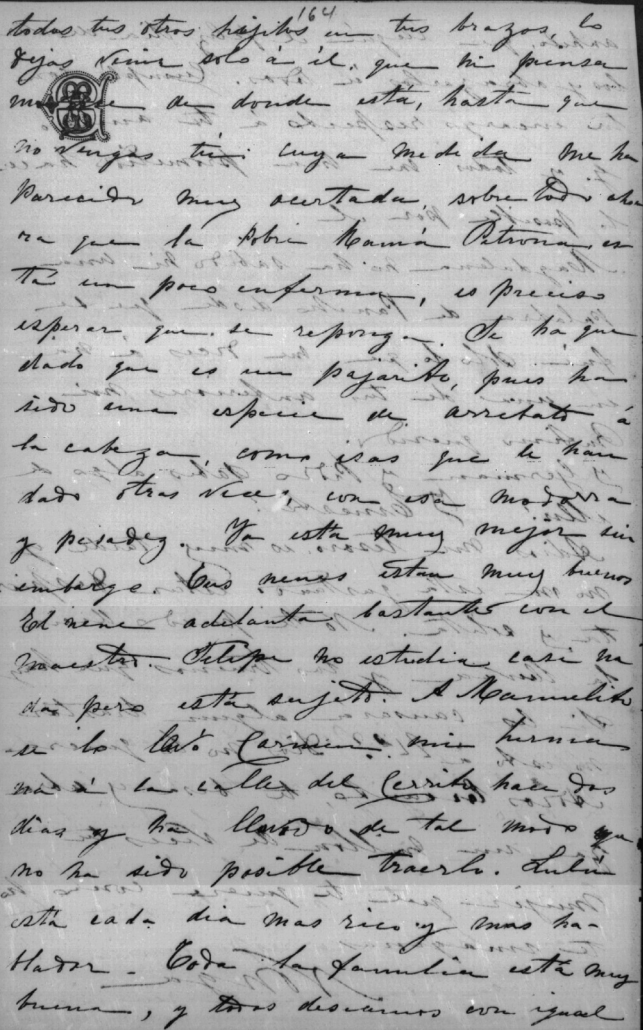 164
todos tus otros hijitos en tus brazos, lo
dejas venir solo á él, que ni piensa
de donde está, hasta que
no vengas tú; cuya medida me ha
parecido muy acertada, sobre todo aho
ra que la pobre Mamá Petrona es
tá un poco enferma, es preciso
esperar, que se reponga. Se ha que
dado que es un pajarito, pues ha
sido una especie de arrebato á
la cabeza, como esos que le han
dado otras veces, con esa modorra
y pesadez. Ya está muy mejor sin
embargo. Tus nenes están muy buenos
El nene adelanta bastante con el
maestro. Felipe no estudia casi na
da, pero está sujeto. A Manuelito
se lo llevó Carmen mi herma
na á la calle del Cerrito hace dos
dias y ha llorado de tal modo que
no ha sido posible traerlo. Lulú
está cada dia mas rico y mas ha-
blador. Toda la familia está muy
buena, y todos deseamos con igual